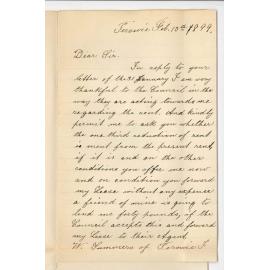 Terowie Feb. 13th 1899.
Dear Sir.
In reply to your
letter of the 31 January I am very
thankful to the Council in the
way they are acting towards me
regarding the rent. And kindly
permit me to ask you whether
the one third reduction of rent
is ment from the present rent
if it is and on the other
conditions you offer me now
and on condition you forward
my Lease without any expense
a friend of mine is going to
lend me forty pounds, if the
Council accepts this and forward
my Lease to their agent
W. Summers of Terowie I